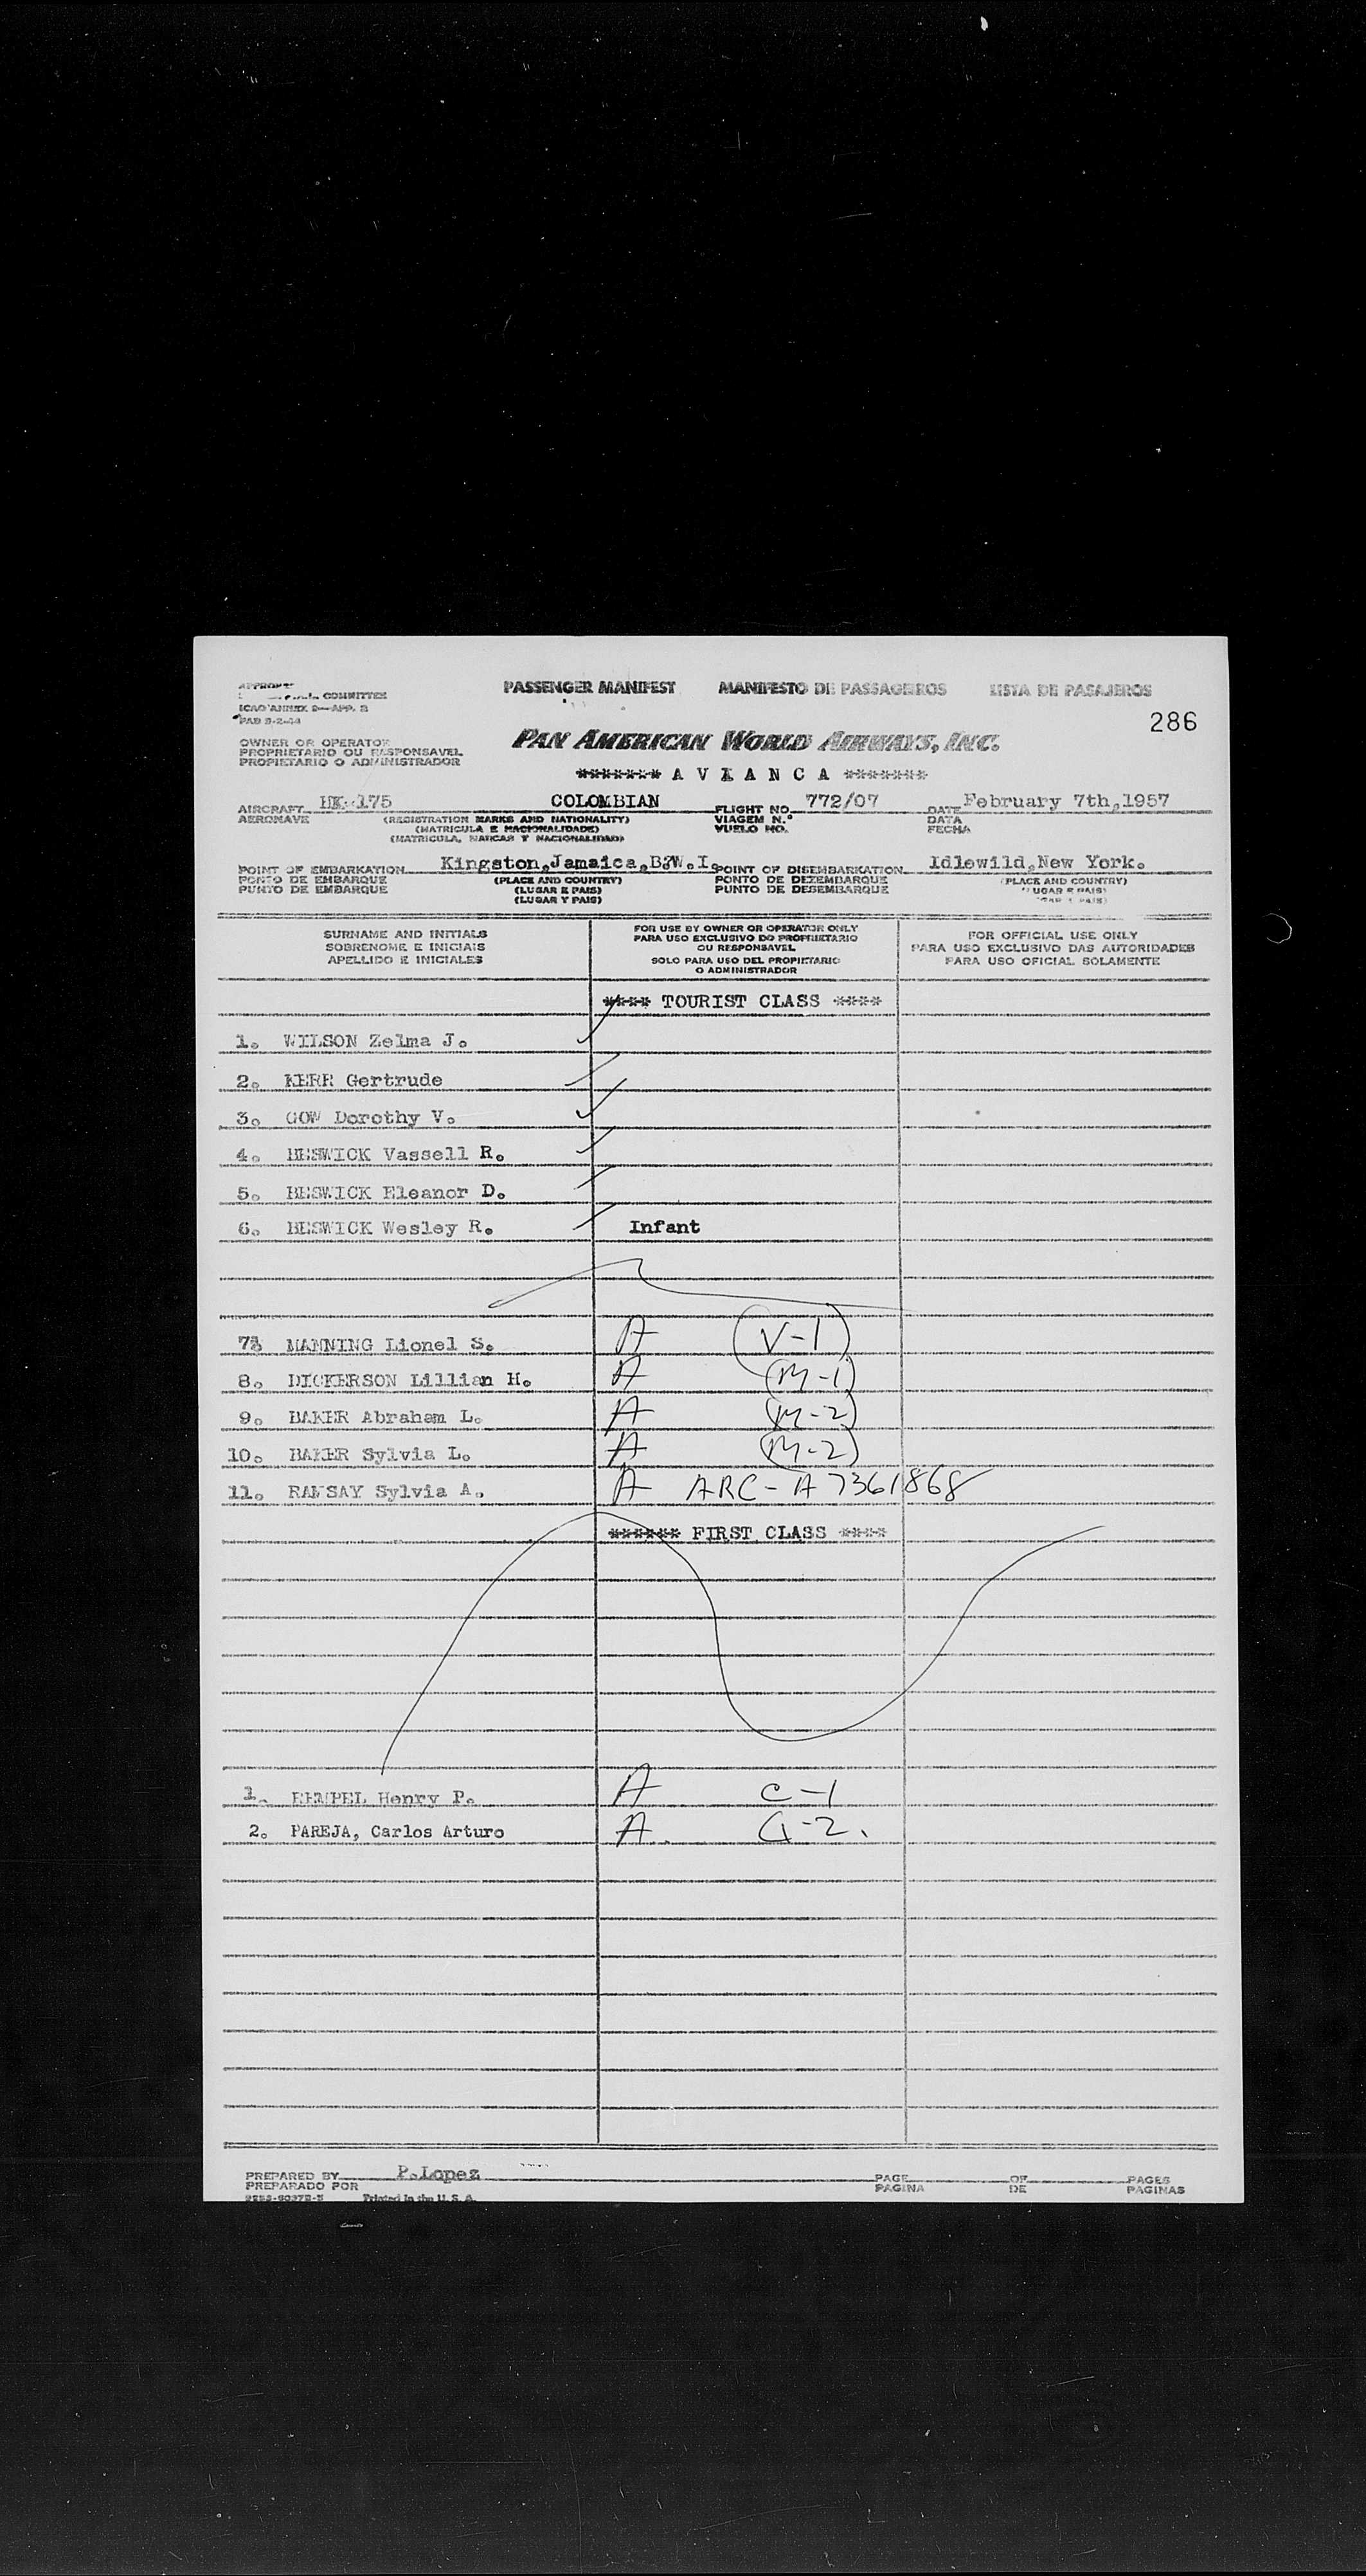 PASSENGER MANIFEST MANIFESTO DE PASSAGEIROS LISTA DE PASAJEROS
COMMITTEE
ICAO ANNEX 9—APP. B
PAB 9-2-44
286
OWNER OR OPERATOR
PROPRIETARIO OU RESPONSAVEL
PROPIETARIO O ADMINISTRADOR
PAN AMERICAN WORLD AIRWAYS, INC.
******* A V I A N C A *******
AIRCRAFT HK-175 COLOMBIAN FLIGHT NO. 772/07 DATE February 7th,1957
AERONAVE (REGISTRATION MARKS AND NATIONALITY) VIAGEM N.º DATA
(MATRICULA E NACIONALIDADE) VUELO NO. FECHA
(MATRICULA, MARCAS Y NACIONALIDAD)
POINT OF EMBARKATION Kingston,Jamaica,B.W.I. POINT OF DISEMBARKATION Idlewild,New York.
PONTO DE EMBARQUE (PLACE AND COUNTRY) PONTO DE DEZEMBARQUE (PLACE AND COUNTRY)
PUNTO DE EMBARQUE (LUGAR E PAIS) PUNTO DE DESEMBARQUE (LUGAR E PAIS)
(LUGAR Y PAIS) (LUGAR Y PAIS)
SURNAME AND INITIALS
SOBRENOME E INICIAIS
APELLIDO E INICIALES
FOR USE BY OWNER OR OPERATOR ONLY
PARA USO EXCLUSIVO DO PROPRIETARIO
OU RESPONSAVEL
SOLO PARA USO DEL PROPIETARIO
O ADMINISTRADOR
FOR OFFICIAL USE ONLY
PARA USO EXCLUSIVO DAS AUTORIDADES
PARA USO OFICIAL SOLAMENTE
**** TOURIST CLASS ****
1. WILSON Zelma J.
2. KERR Gertrude
3. GOW Dorothy V.
4. BESWICK Vassell R.
5. BESWICK Eleanor D.
6. BESWICK Wesley R. Infant
7. MANNING Lionel S. A (V-1)
8. DICKERSON Lillian H. A (M-1)
9. BAKER Abraham L. A (M-2)
10. BAKER Sylvia L. A (M-2)
11. RAMSAY Sylvia A. A ARC-A7361868
****** FIRST CLASS ****
1. Henry P. A C-1
2. PAREJA, Carlos Arturo A G-2.
PREPARED BY P.Lopez PAGE OF PAGES
PREPARADO POR PAGINA DE PAGINAS
Printed in the U. S. A.